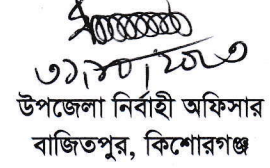 ৩১/১০/২০২৩
উপজেলা নির্বাহী অফিসার
বাজিতপুর, কিশোরগঞ্জ